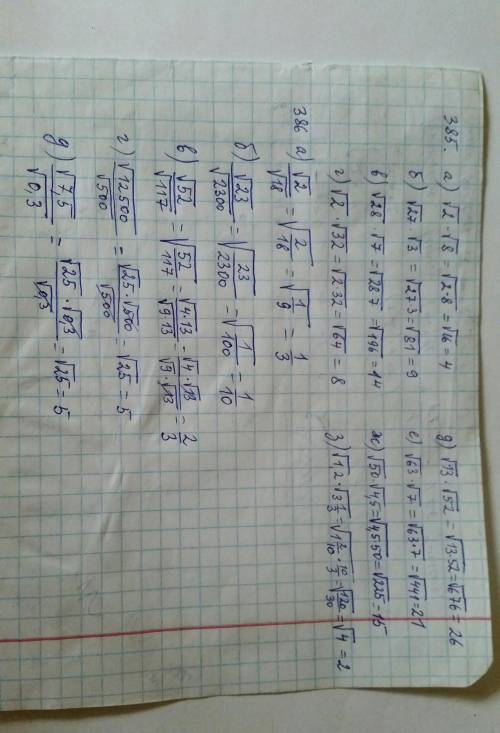 385. а) √2 · √8 = √2·8 = √16 = 4
б) √27 · √3 = √27·3 = √81 = 9
в) √28 · √7 = √28·7 = √196 = 14
г) √2 · √32 = √2·32 = √64 = 8
д) √13 · √52 = √13·52 = √676 = 26
е) √63 · √7 = √63·7 = √441 = 21
ж) √50 · √4,5 = √4,5·50 = √225 = 15
з) √1,2 · √3 1/3 = √1 2/10 · 10/3 = √120/30 = √4 = 2
386 а) √2/√18 = √2/18 = √1/9 = 1/3
б) √23/√2300 = √23/2300 = √1/100 = 1/10
в) √52/√117 = √52/117 = √4·13/√9·13 = √4·√13/√9·√13 = 2/3
г) √12500/√500 = √25·√500/√500 = √25 = 5
д) √7,5/√0,3 = √25·√0,3/√0,3 = √25 = 5